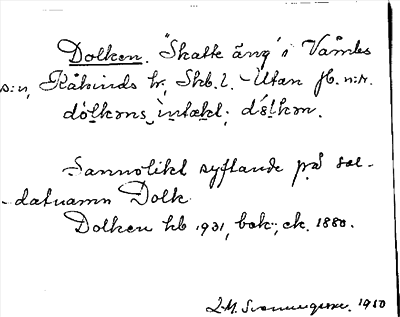 Dolken. "Skatte äng" i Våmbs
s:n, Kåkinds hr, Skb. l. - Utan jb. n:r.
dòlkəns ìntækt; dólkən.
Sannolikt syftande på sol-
-datnamn Dolk
Dolken hb 1931, bek.; ek. 1880.
1910